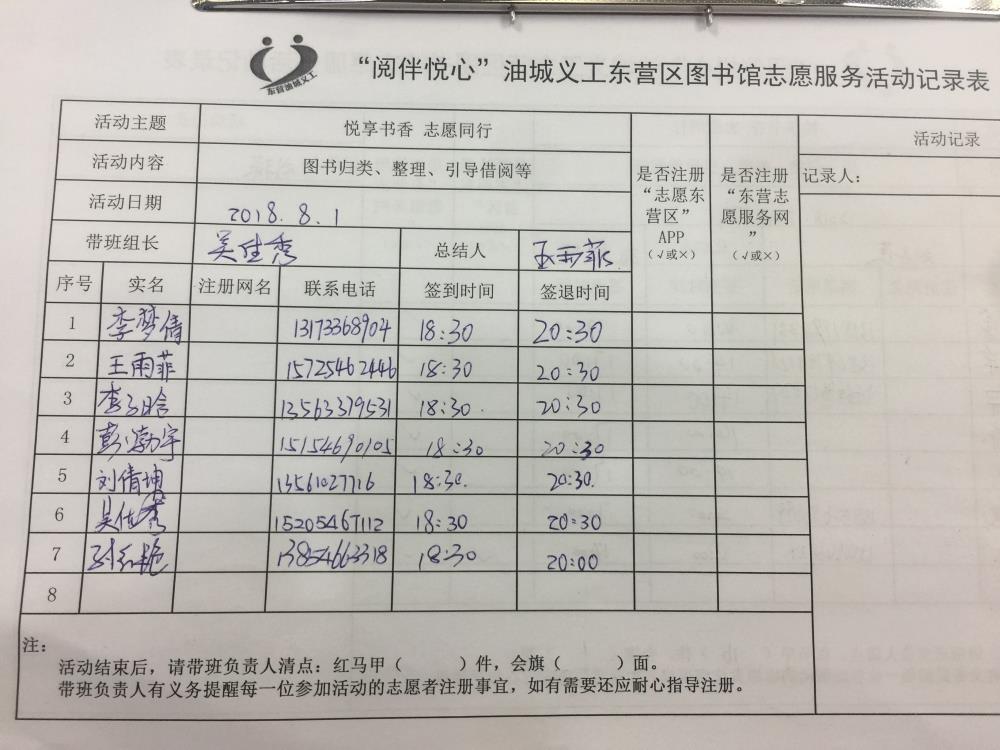 东营油城义工
“阅伴悦心”油城义工东营区图书馆志愿服务活动记录表
活动主题 悦享书香 志愿同行
活动内容 图书归类、整理、引导借阅等
活动日期 2018.8.1
带班组长 吴佳秀 总结人 王雨菲
是否注册“志愿东营区”APP（√或×）
是否注册“东营志愿服务网”（√或×）
活动记录
记录人：
序号 实名 注册网名 联系电话 签到时间 签退时间
1 李梦倩 13173368904 18:30 20:30
2 王雨菲 15725462446 18:30 20:30
3 李子晗 13563379531 18:30 20:30
4 彭渤宇 15154690105 18:30 20:30
5 刘倩坤 13561027716 18:30 20:30
6 吴佳秀 15205467112 18:30 20:30
7 13854663318 18:30 20:00
8
注：
活动结束后，请带班负责人清点：红马甲（ ）件，会旗（ ）面。
带班负责人有义务提醒每一位参加活动的志愿者注册事宜，如有需要还应耐心指导注册。